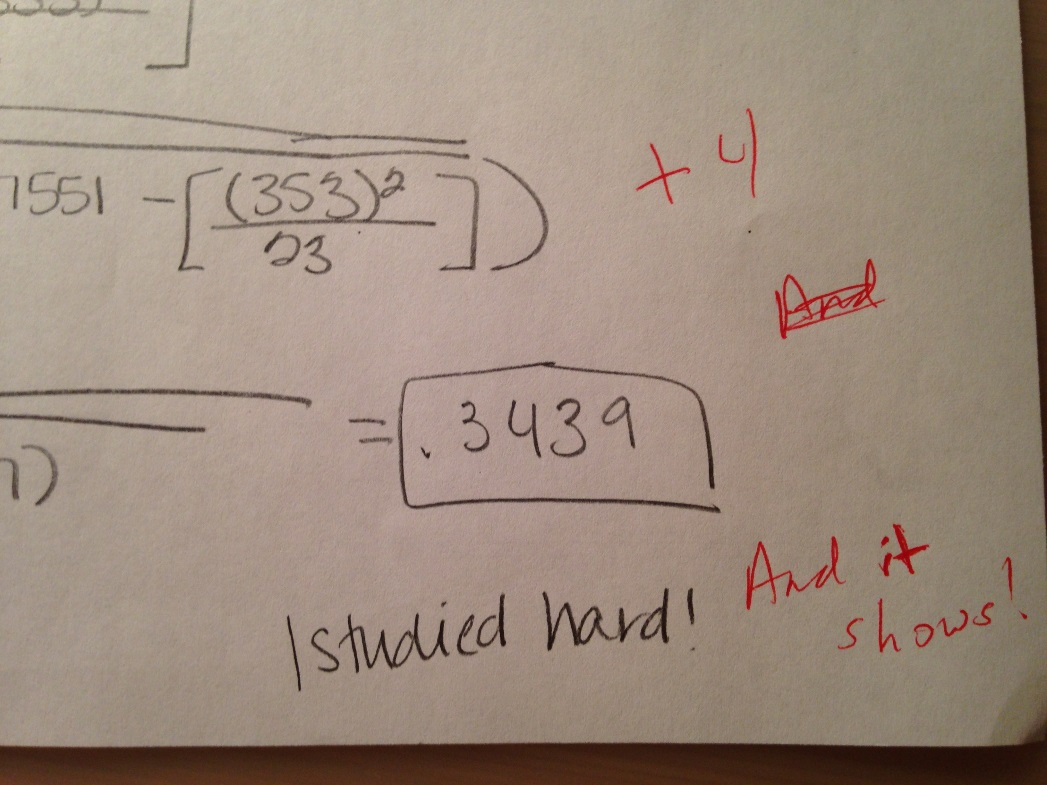 7551 - [(353)²
23 ])
+4
And
= .3439
7)
I studied hard!
And it
shows!